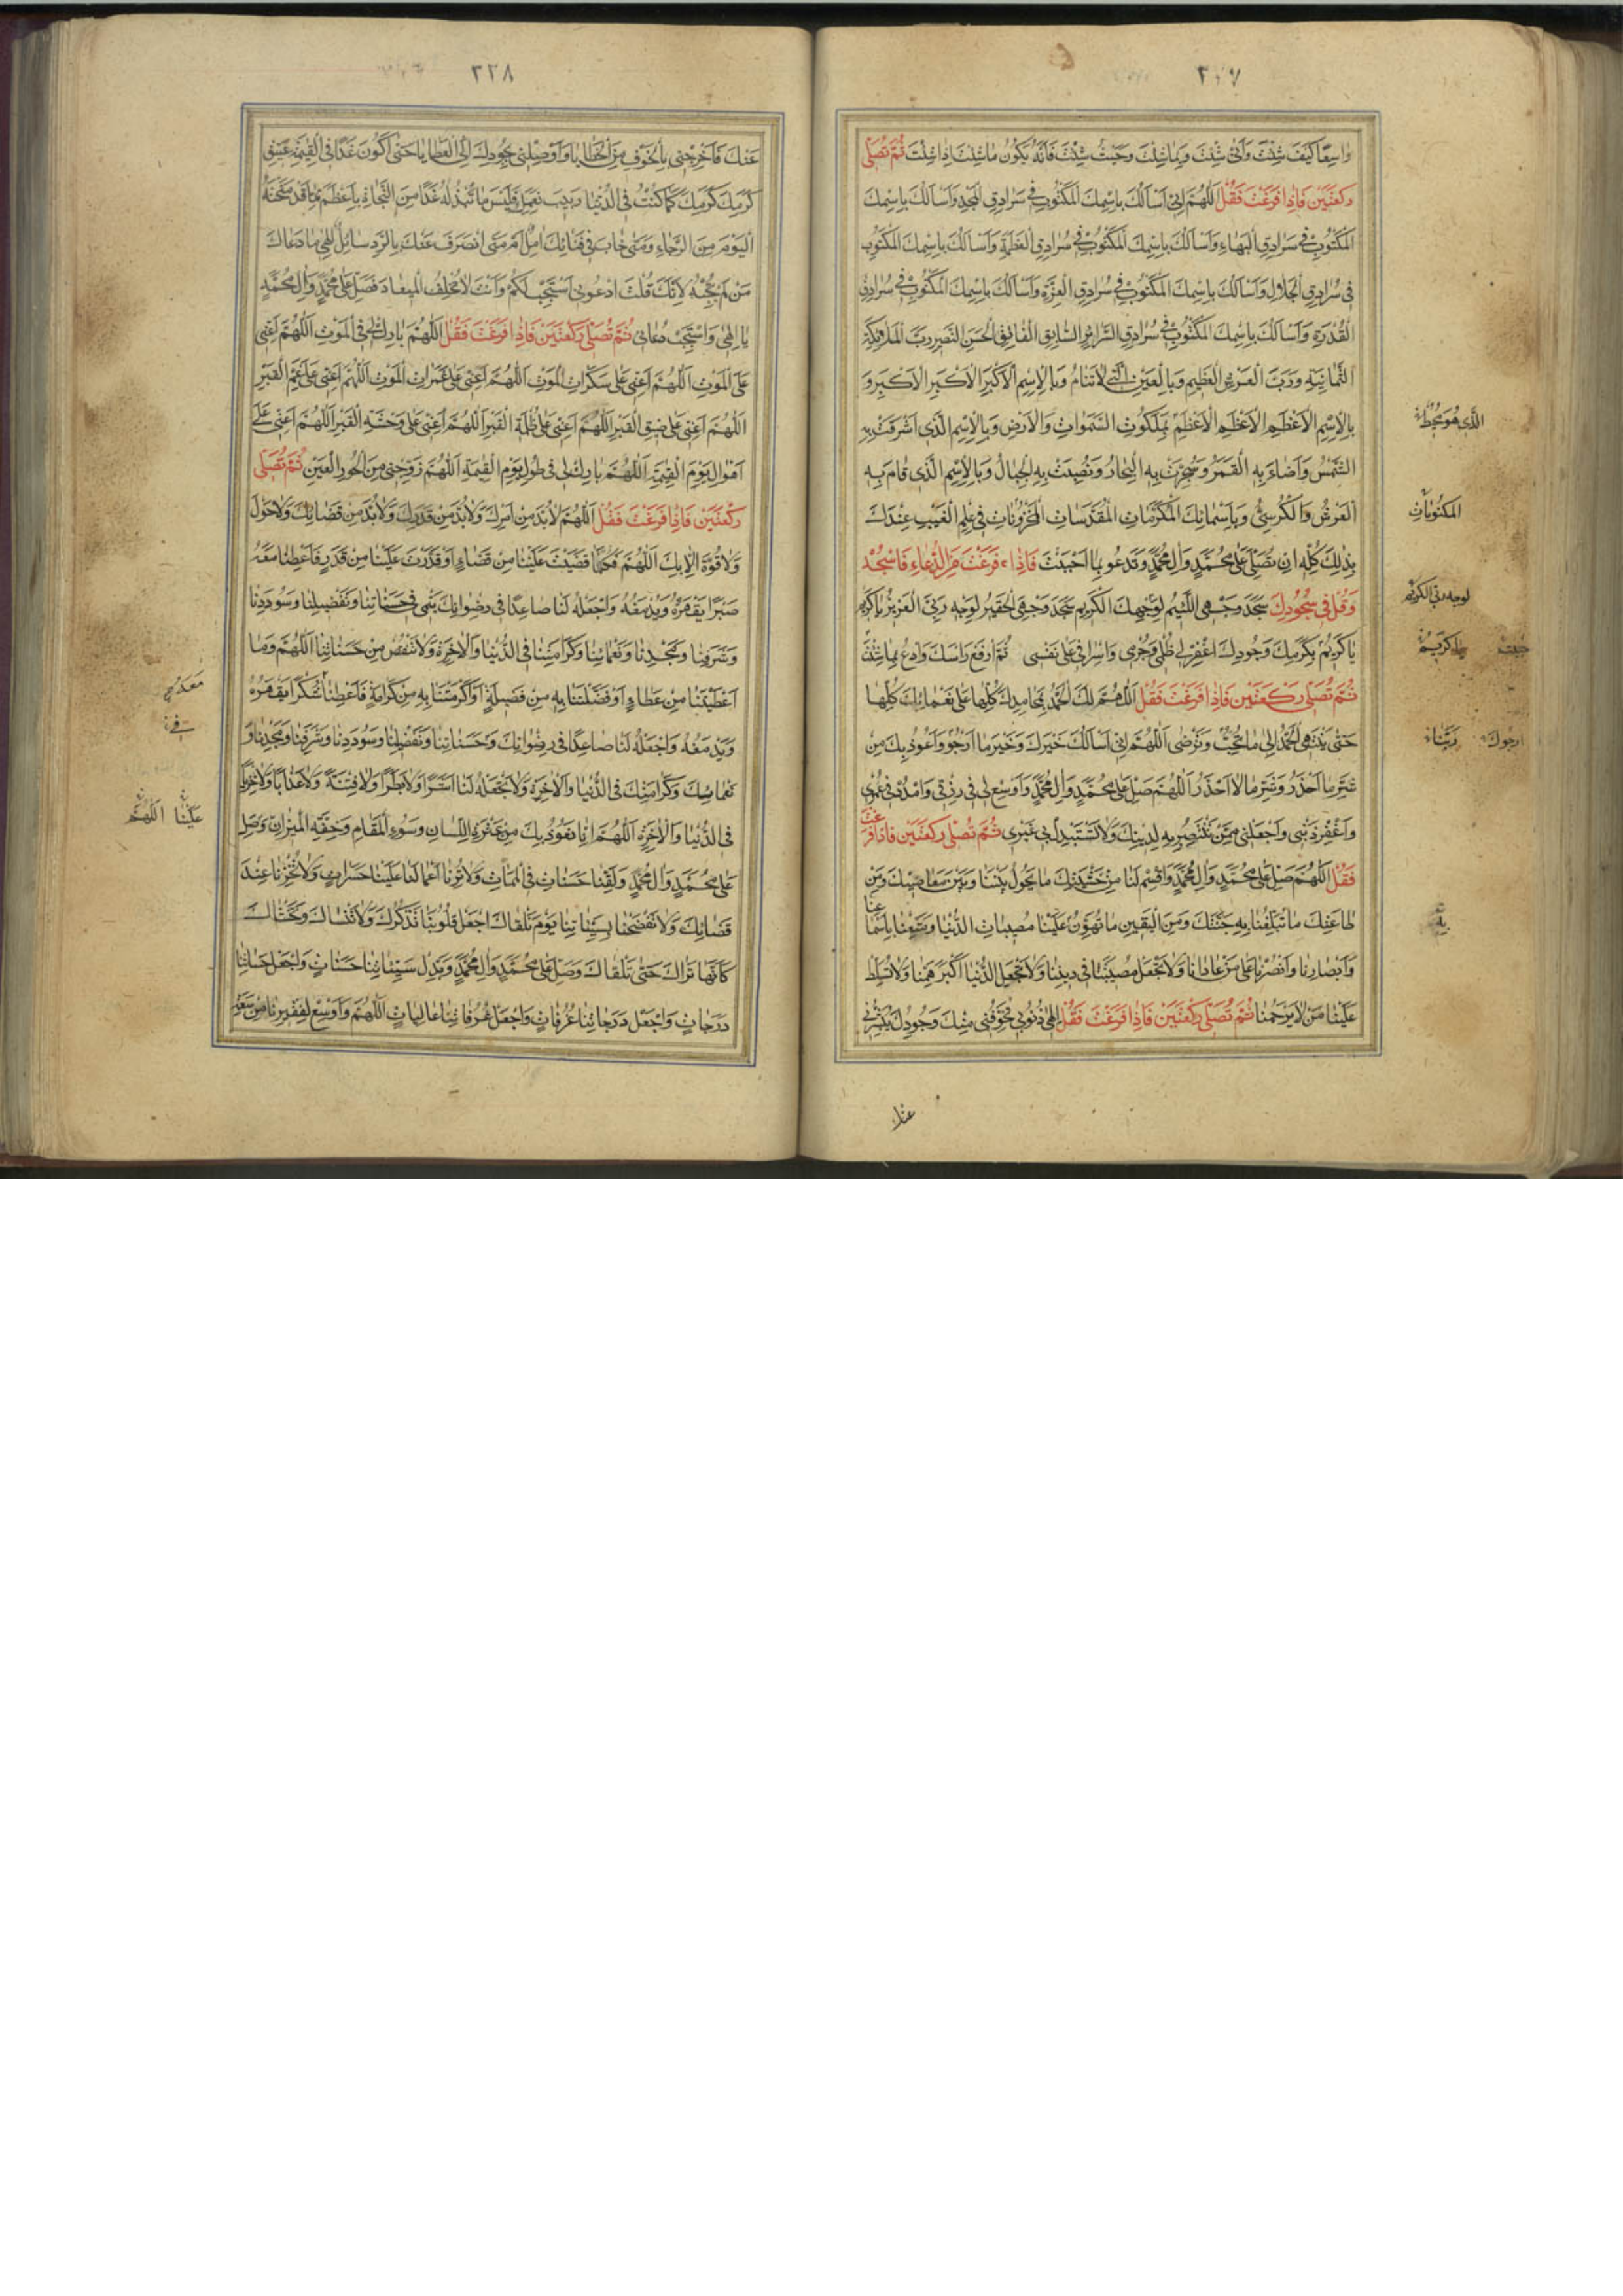 واسِعًا كَيْفَ شِئْتَ وَاَنّى شِئْتَ وَبِما شِئْتَ وَحَيْثُ شِئْتَ فَاِنَّهُ يَكُونُ ما شِئْتَ اِذا شِئْتَ ثُمَّ تُصَلّي
رَكْعَتَيْنِ فَاِذا فَرَغْتَ فَقُلْ اَللّهُمَّ اِنّي اَسْاَلُكَ بِاسْمِكَ الْمَكْتُوبِ في سُرادِقِ الْمَجْدِ وَاَسْاَلُكَ بِاسْمِكَ
الْمَكْتُوبِ في سُرادِقِ الْبَهاءِ وَاَسْاَلُكَ بِاسْمِكَ الْمَكْتُوبِ في سُرادِقِ الْعَظَمَةِ وَاَسْاَلُكَ بِاسْمِكَ الْمَكْتُوبِ
في سُرادِقِ الْجَلالِ وَاَسْاَلُكَ بِاسْمِكَ الْمَكْتُوبِ في سُرادِقِ الْعِزَّةِ وَاَسْاَلُكَ بِاسْمِكَ الْمَكْتُوبِ في سُرادِقِ
الْقُدْرَةِ وَاَسْاَلُكَ بِاسْمِكَ الْمَكْتُوبِ في سُرادِقِ السَّرائِرِ السّابِقِ الْفائِقِ الْحَسَنِ النَّضيرِ رَبَّ الْمَلائِكَةِ
الثَّمانِيَةِ وَرَبَّ الْعَرْشِ الْعَظيمِ وَبِالْعَيْنِ الَّتي لاتَنامُ وَبِالْاِسْمِ الْاَكْبَرِ الْاَكْبَرِ الْاَكْبَرِ وَ
بِالْاِسْمِ الْاَعْظَمِ الْاَعْظَمِ الْاَعْظَمِ بِمَلَكُوتِ السَّمواتِ وَالْاَرْضِ وَبِالْاِسْمِ الَّذي اَشْرَقَتْ بِهِ
الشَّمْسُ وَاَضاءَ بِهِ الْقَمَرُ وَسُجِّرَتْ بِهِ الْبِحارُ وَنُصِبَتْ بِهِ الْجِبالُ وَبِالْاِسْمِ الَّذي قامَ بِهِ
الْعَرْشُ وَالْكُرْسِيُّ وَبِاَسْمائِكَ الْمُكَرَّماتِ الْمُقَدَّساتِ الْمَخْزُوناتِ في عِلْمِ الْغَيْبِ عِنْدَكَ
بِذلِكَ كُلِّهِ اَنْ تُصَلِّيَ عَلى مُحَمَّدٍ وَالِ مُحَمَّدٍ وَتَدْعُو بِما اَحْبَبْتَ فَاِذا فَرَغْتَ مِنَ الدُّعاءِ فَاسْجُدْ
وَقُلْ في سُجُودِكَ سَجَدَ وَجْهِيَ اللَّئيمُ لِوَجْهِكَ الْكَريمِ سَجَدَ وَجْهِيَ الْحَقيرُ لِوَجْهِ رَبِّيَ الْعَزيزِ يا كَريمُ
يا كَريمُ بِكَرَمِكَ وَجُودِكَ اغْفِرْ لي ظُلْمي وَجُرْمي وَاِسْرافي عَلى نَفْسي ثُمَّ ارْفَعْ رَاْسَكَ وَادْعُ بِما شِئْتَ
ثُمَّ تُصَلّي رَكْعَتَيْنِ فَاِذا فَرَغْتَ فَقُلْ اَللّهُمَّ لَكَ الْحَمْدُ بِمَحامِدِكَ كُلِّها عَلى نَعْمائِكَ كُلِّها
حَتّى يَنْتَهِيَ الْحَمْدُ اِلى ما تُحِبُّ وَتَرْضى اَللّهُمَّ اِنّي اَسْاَلُكَ خَيْرَكَ وَخَيْرَ ما اَرْجُو وَاَعُوذُ بِكَ مِنْ
شَرِّ ما اَحْذَرُ وَشَرِّ ما لا اَحْذَرُ اَللّهُمَّ صَلِّ عَلى مُحَمَّدٍ وَالِ مُحَمَّدٍ وَاَوْسِعْ لي في رِزْقي وَامْدُدْ في عُمْري
وَاغْفِرْ ذَنْبي وَاجْعَلْني مِمَّنْ تَنْتَصِرُ بِهِ لِدينِكَ وَلاتَسْتَبْدِلْ بي غَيْري ثُمَّ تُصَلّي رَكْعَتَيْنِ فَاِذا فَرَغْتَ
فَقُلْ اَللّهُمَّ صَلِّ عَلى مُحَمَّدٍ وَالِ مُحَمَّدٍ وَاقْسِمْ لَنا مِنْ خَشْيَتِكَ ما يَحُولُ بَيْنَنا وَبَيْنَ مَعاصيكَ وَمِنْ
طاعَتِكَ ما تُبَلِّغُنا بِهِ جَنَّتَكَ وَمِنَ الْيَقينِ ما تُهَوِّنُ عَلَيْنا مُصيباتِ الدُّنْيا وَمَتِّعْنا بِاَسْماعِنا
وَاَبْصارِنا وَانْصُرْنا عَلى مَنْ عادانا وَلاتَجْعَلْ مُصيبَتَنا في دينِنا وَلاتَجْعَلِ الدُّنْيا اَكْبَرَ هَمِّنا وَلاتُسَلِّطْ
عَلَيْنا مَنْ لايَرْحَمُنا ثُمَّ تُصَلّي رَكْعَتَيْنِ فَاِذا فَرَغْتَ فَقُلْ اِلهي ذُنُوبي تُخَوِّفُني مِنْكَ وَجُودُكَ يُبَشِّرُني
الَّذي هُوَ مُحيطٌ
المَكْنُوناتِ
لوجه ربي الكريم
يا كَريمُ
ارجوك
رَبَّنا
بِهِ
عنك
٢٢٨
عَنْكَ فَاَخْرِجْني بِالْخَوْفِ مِنَ الْخَطايا وَاَوْصِلْني بِجُودِكَ اِلَى الْعَطايا حَتّى اَكُونَ غَدًا فِي الْقِيمَةِ عَتيقَ
كَرَمِكَ كَما كُنْتُ فِي الدُّنْيا رَبيبَ نِعَمِكَ فَلَيْسَ ما تَبْذُلُهُ غَدًا مِنَ النَّجاةِ بِاَعْظَمَ مِمّا قَدْ مَنَحْتَهُ
الْيَوْمَ مِنَ الرَّجاءِ وَمَتى خابَ في فِنائِكَ امِلٌ اَمْ مَتى انْصَرَفَ عَنْكَ بِالرَّدِّ سائِلٌ اِلهي ما دَعاكَ
مَنْ لَمْ تُجِبْهُ لِاَنَّكَ قُلْتَ ادْعُوني اَسْتَجِبْ لَكُمْ وَاَنْتَ لاتُخْلِفُ الْميعادَ فَصَلِّ عَلى مُحَمَّدٍ وَالِ مُحَمَّدٍ
يا اِلهي وَاسْتَجِبْ دُعائي ثُمَّ تُصَلّي رَكْعَتَيْنِ فَاِذا فَرَغْتَ فَقُلْ اَللّهُمَّ بارِكْ لي فِي الْمَوْتِ اَللّهُمَّ اَعِنّي
عَلَى الْمَوْتِ اَللّهُمَّ اَعِنّي عَلى سَكَراتِ الْمَوْتِ اَللّهُمَّ اَعِنّي عَلى غَمَراتِ الْمَوْتِ اَللّهُمَّ اَعِنّي عَلى غَمِّ الْقَبْرِ
اَللّهُمَّ اَعِنّي عَلى ضيقِ الْقَبْرِ اَللّهُمَّ اَعِنّي عَلى ظُلْمَةِ الْقَبْرِ اَللّهُمَّ اَعِنّي عَلى وَحْشَةِ الْقَبْرِ اَللّهُمَّ اَعِنّي عَلى
اَهْوالِ يَوْمِ الْقِيمَةِ اَللّهُمَّ بارِكْ لي في طُولِ يَوْمِ الْقِيمَةِ اَللّهُمَّ زَوِّجْني مِنَ الْحُورِ الْعينِ ثُمَّ تُصَلّي
رَكْعَتَيْنِ فَاِذا فَرَغْتَ فَقُلْ اَللّهُمَّ لابُدَّ مِنْ اَمْرِكَ وَلابُدَّ مِنْ قَدَرِكَ وَلابُدَّ مِنْ قَضائِكَ وَلاحَوْلَ
وَلاقُوَّةَ اِلّا بِكَ اَللّهُمَّ فَكَما قَضَيْتَ عَلَيْنا مِنْ قَضاءٍ اَوْ قَدَّرْتَ عَلَيْنا مِنْ قَدَرٍ فَاَعْطِنا مَعَهُ
صَبْرًا يَقْهَرُهُ وَيَدْمَغُهُ وَاجْعَلْهُ لَنا صاعِدًا في رِضْوانِكَ يَنْمي في حَسَناتِنا وَتَفْضيلِنا وَسُودَدِنا
وَشَرَفِنا وَمَجْدِنا وَنَعْمائِنا وَكَرامَتِنا فِي الدُّنْيا وَالْاخِرَةِ وَلاتَنْقُصْ مِنْ حَسَناتِنا اَللّهُمَّ وَما
اَعْطَيْتَنا مِنْ عَطاءٍ اَوْ فَضَّلْتَنا بِهِ مِنْ فَضيلَةٍ اَوْ اَكْرَمْتَنا بِهِ مِنْ كَرامَةٍ فَاَعْطِنا شُكْرًا يَقْهَرُهُ
وَيَدْمَغُهُ وَاجْعَلْهُ لَنا صاعِدًا في رِضْوانِكَ وَحَسَناتِنا وَتَفْضيلِنا وَسُودَدِنا وَشَرَفِنا وَمَجْدِنا وَ
نَعْمائِكَ وَكَرامَتِكَ فِي الدُّنْيا وَالْاخِرَةِ وَلاتَجْعَلْهُ لَنا اَشَرًا وَلابَطَرًا وَلافِتْنَةً وَلاعَذابًا وَلاخِزْيًا
فِي الدُّنْيا وَالْاخِرَةِ اَللّهُمَّ اِنّا نَعُوذُ بِكَ مِنْ عَثْرَةِ اللِّسانِ وَسُوءِ الْمَقامِ وَخِفَّةِ الْميزانِ وَصَلِّ
عَلى مُحَمَّدٍ وَالِ مُحَمَّدٍ وَلَقِّنا حَسَناتٍ فِي الْمَماتِ وَلاتُرِنا اَعْمالَنا عَلَيْنا حَسَراتٍ وَلاتُخْزِنا عِنْدَ
قَضائِكَ وَلاتَفْضَحْنا بِسَيِّئاتِنا يَوْمَ نَلْقاكَ اجْعَلْ قُلُوبَنا تَذْكُرُكَ وَلاتَنْساكَ وَتَخْشاكَ
كَاَنَّها تَراكَ حَتّى تَلْقاكَ وَصَلِّ عَلى مُحَمَّدٍ وَالِ مُحَمَّدٍ وَبَدِّلْ سَيِّئاتِنا حَسَناتٍ وَاجْعَلْ حَسَناتِنا
دَرَجاتٍ وَاجْعَلْ دَرَجاتِنا غُرُفاتٍ وَاجْعَلْ غُرُفاتِنا عالِياتٍ اَللّهُمَّ وَاَوْسِعْ لِفَقيرِنا مِنْ سَعَةِ
في
عَلَيْنا اَللّهُمَّ